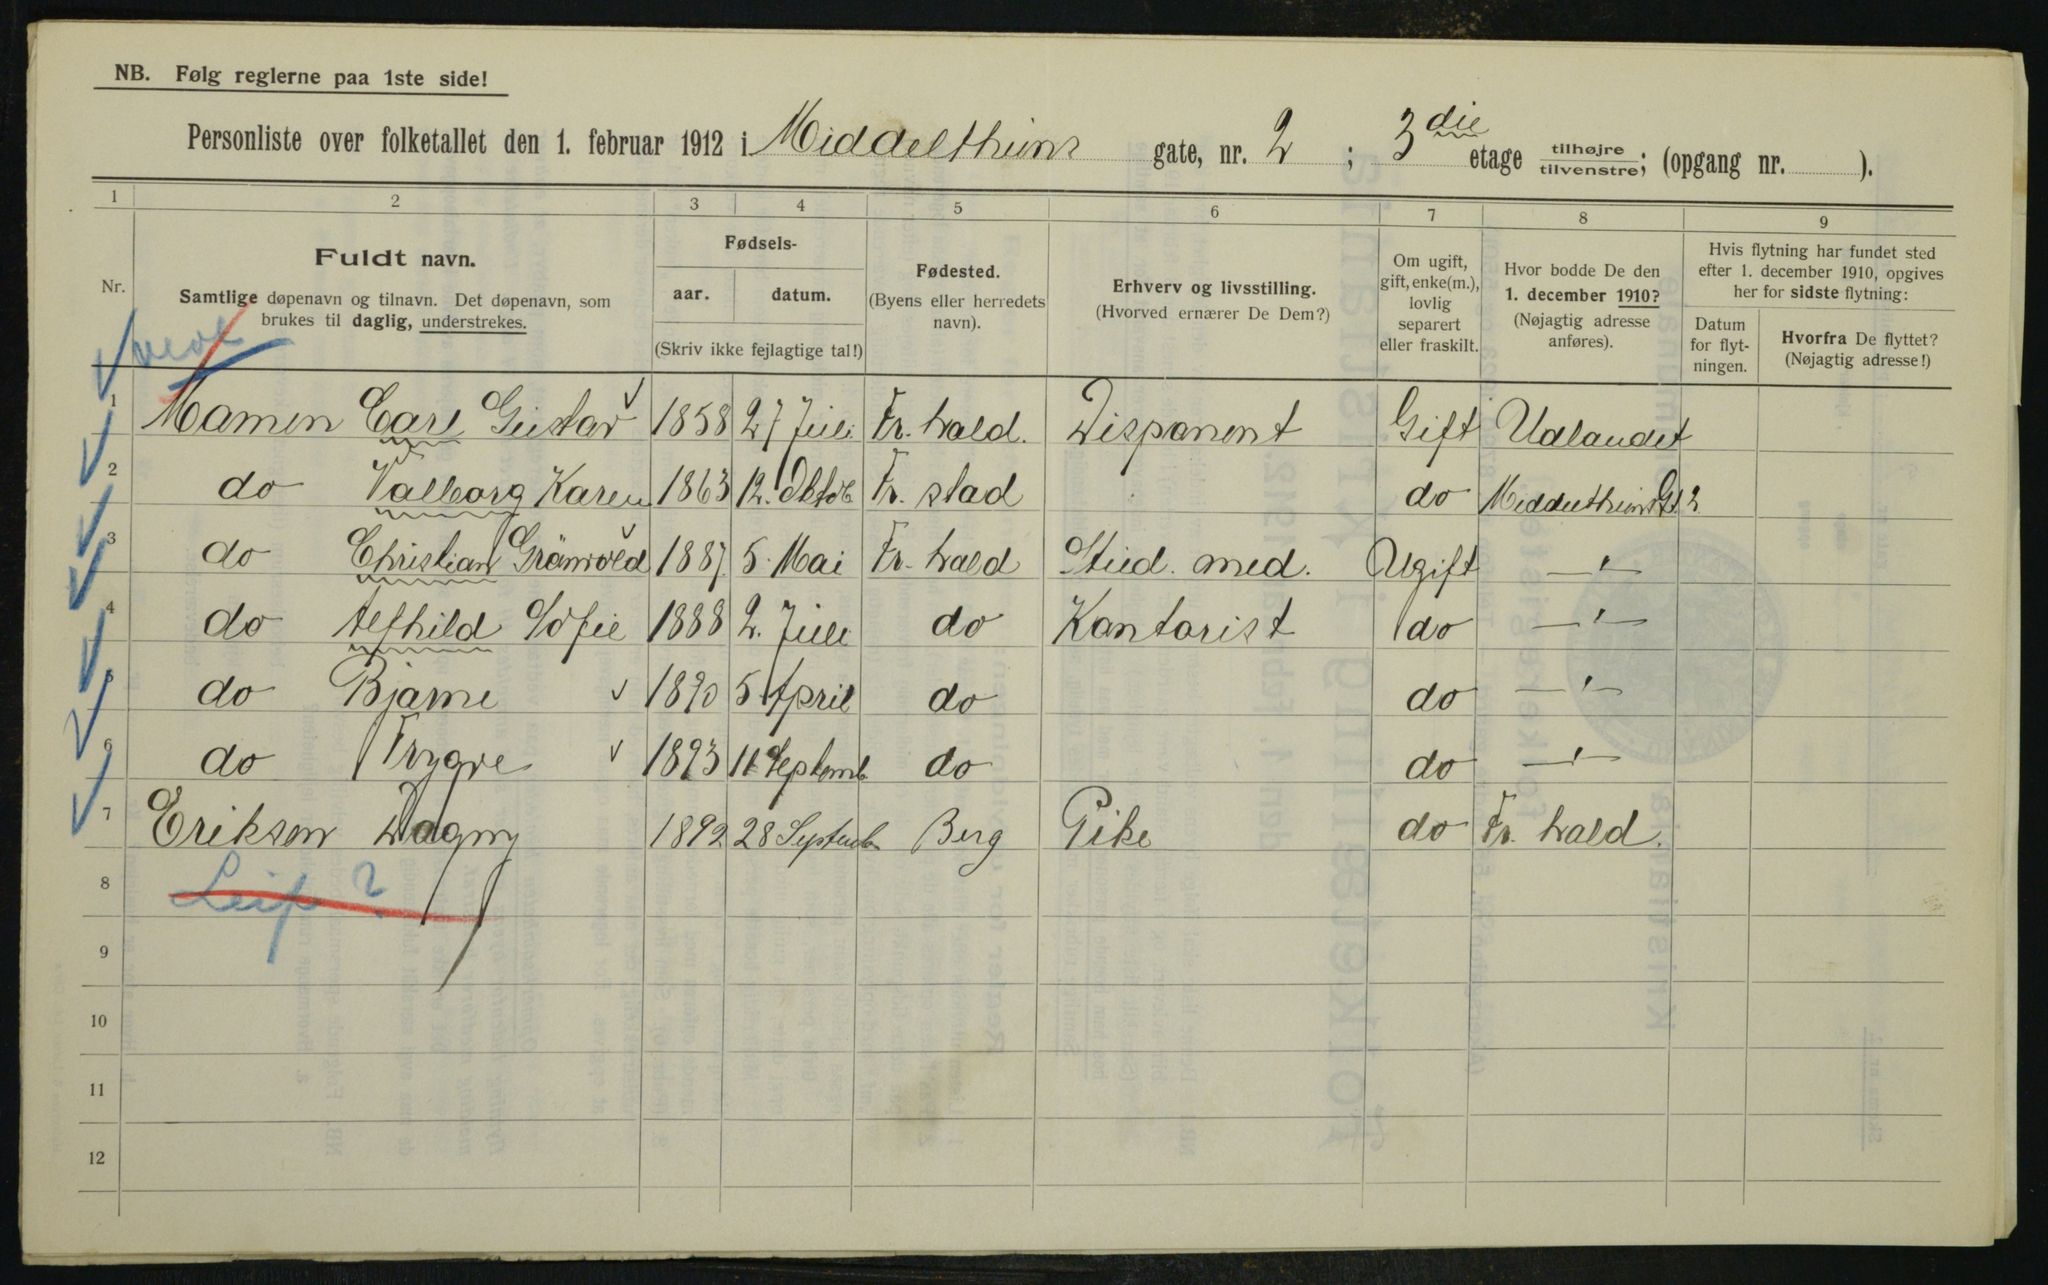 NB. Følg reglerne paa 1ste side!
Personliste over folketallet den 1. februar 1912 i Middelthuns gate, nr. 2 ; 3 die etage tilhøjre / tilvenstre; (opgang nr. ).
1 2 3 4 5 6 7 8 9
Nr.
Fuldt navn.
Samtlige døpenavn og tilnavn. Det døpenavn, som
brukes til daglig, understrekes.
Fødsels-
aar. datum.
(Skriv ikke fejlagtige tal!)
Fødested.
(Byens eller herredets
navn).
Erhverv og livsstilling.
(Hvorved ernærer De Dem?)
Om ugift,
gift, enke(m.),
lovlig
separert
eller fraskilt.
Hvor bodde De den
1. december 1910?
(Nøjagtig adresse
anføres).
Hvis flytning har fundet sted
efter 1. december 1910, opgives
her for sidste flytning:
Datum
for flyt-
ningen.
Hvorfra De flyttet?
(Nøjagtig adresse!)
1 Mamen Carl Gustav 1858 27 Juli Fr. hald. Disponent Gift Udlandet
2 do Valborg Karen 1863 12. Oktob Fr. stad do Middelthuns Gt. 2
3 do Christian Grönvold 1887 5. Mai Fr. hald Stud. med. Ugift — " —
4 do Alfhild Sofie 1888 2. Juli do Kontorist do — " —
5 do Bjarne 1890 5 April do do — " —
6 do Trygve 1893 11 Septemb do do — " —
7 Erikson Dagny 1892 28 Septemb Berg Pike do Fr. hald.
8 Leif?
9
10
11
12